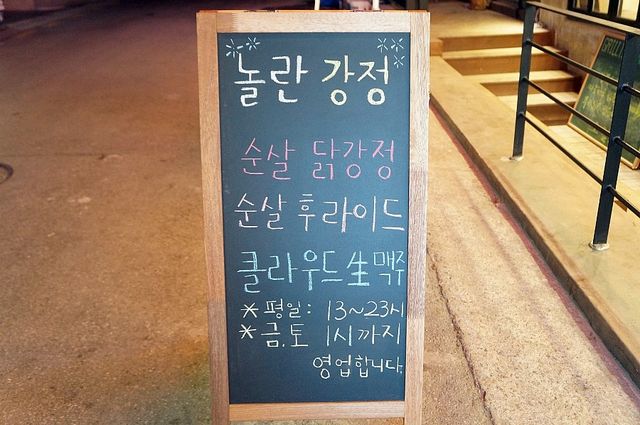 놀란 강정
순살 닭강정
순살 후라이드
클라우드 生 맥주
* 평일: 13~23시
* 금.토 1시까지
영업합니다.